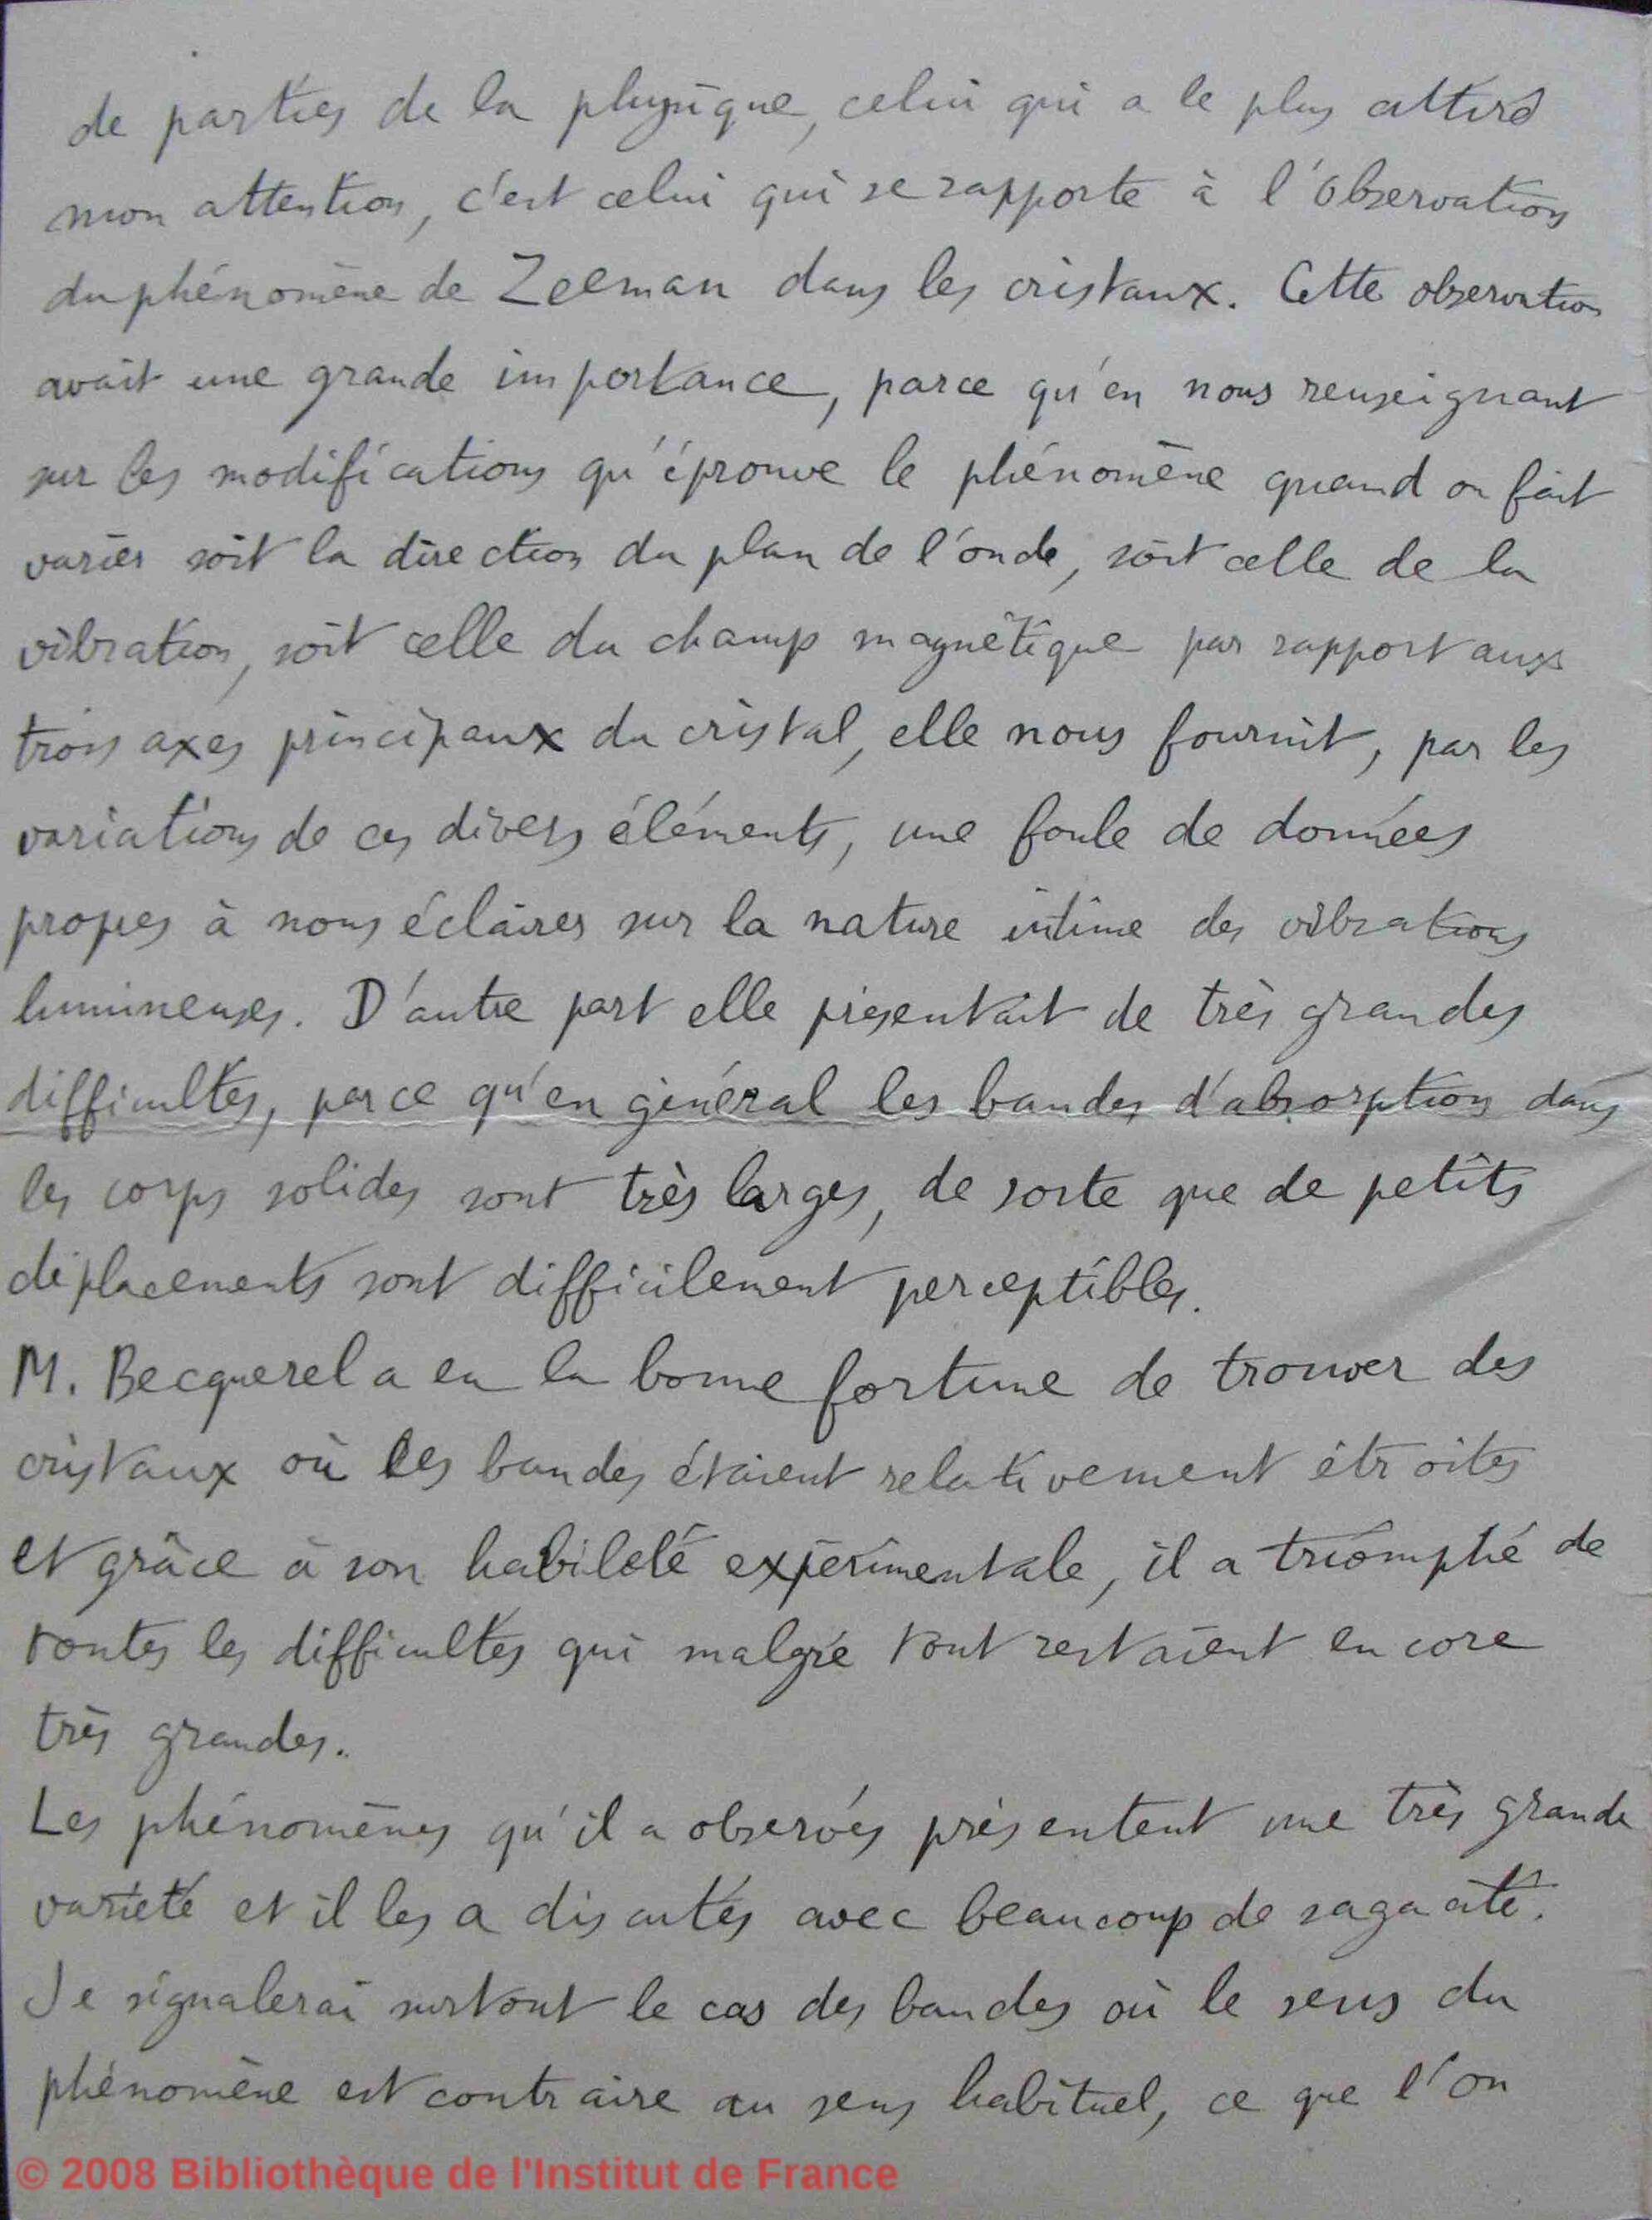 de parties de la physique, celui qui a le plus attiré
mon attention, c'est celui qui se rapporte à l'observation
du phénomène de Zeeman dans les cristaux. Cette observation
avait une grande importance, parce qu'en nous renseignant
sur les modifications qu'éprouve le phénomène quand on fait
varier soit la direction du plan de l'onde, soit celle de la
vibration, soit celle du champ magnétique par rapport aux
trois axes principaux du cristal, elle nous fournit, par les
variations de ces divers éléments, une foule de données
propres à nous éclairer sur la nature intime des vibrations
lumineuses. D'autre part elle présentait de très grandes
difficultés, parce qu'en général les bandes d'absorption dans
les corps solides sont très larges, de sorte que de petits
déplacements sont difficilement perceptibles.
M. Becquerel a eu la bonne fortune de trouver des
cristaux où les bandes étaient relativement étroites
et grâce à son habileté expérimentale, il a triomphé de
toutes les difficultés qui malgré tout restaient encore
très grandes.
Les phénomènes qu'il a observés présentent une très grande
variété et il les a discutés avec beaucoup de sagacité.
Je signalerai surtout le cas des bandes où le sens du
phénomène est contraire au sens habituel, ce que l'on
© 2008 Bibliothèque de l'Institut de France